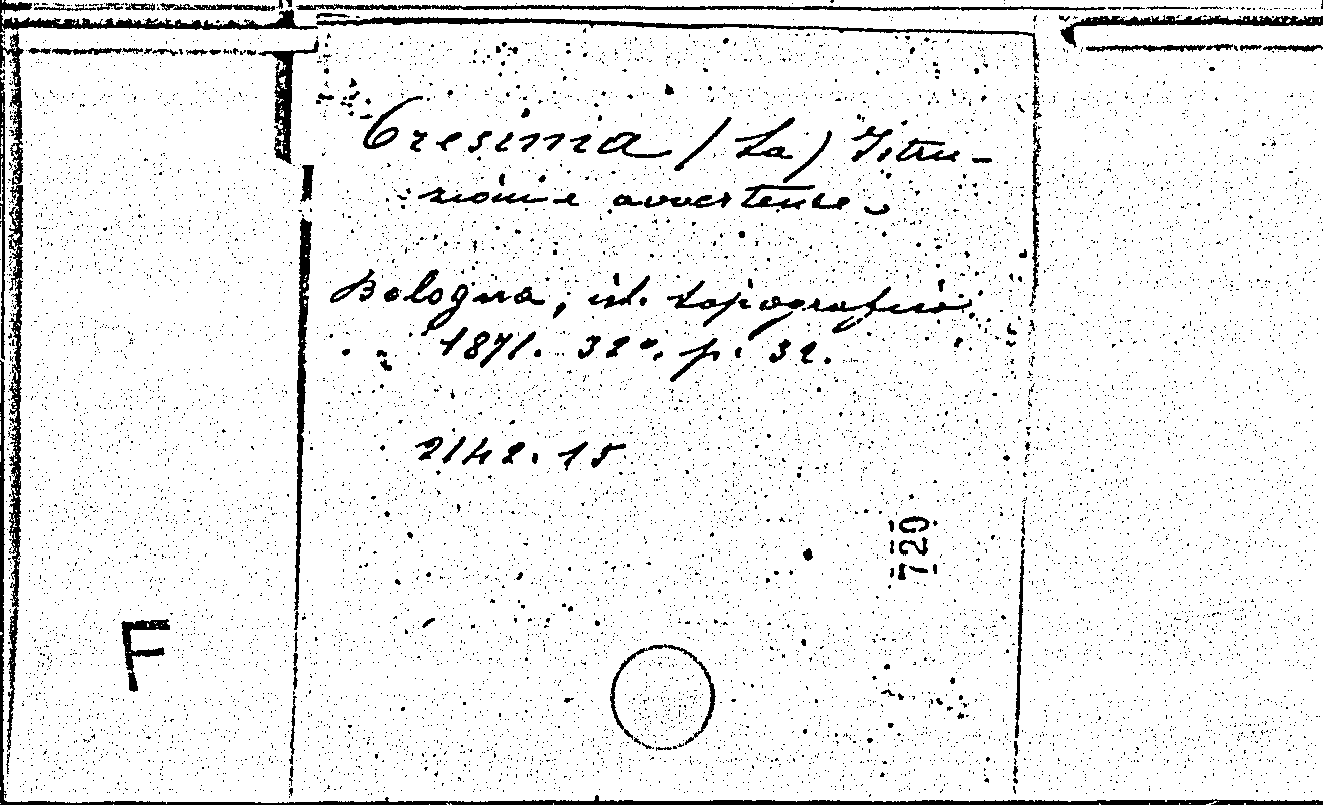 Cresima (La) Istru-
zioni e avvertenze
Bologna, ist. tipografico
1871. 32°. p. 32.
2142. 15
720
F